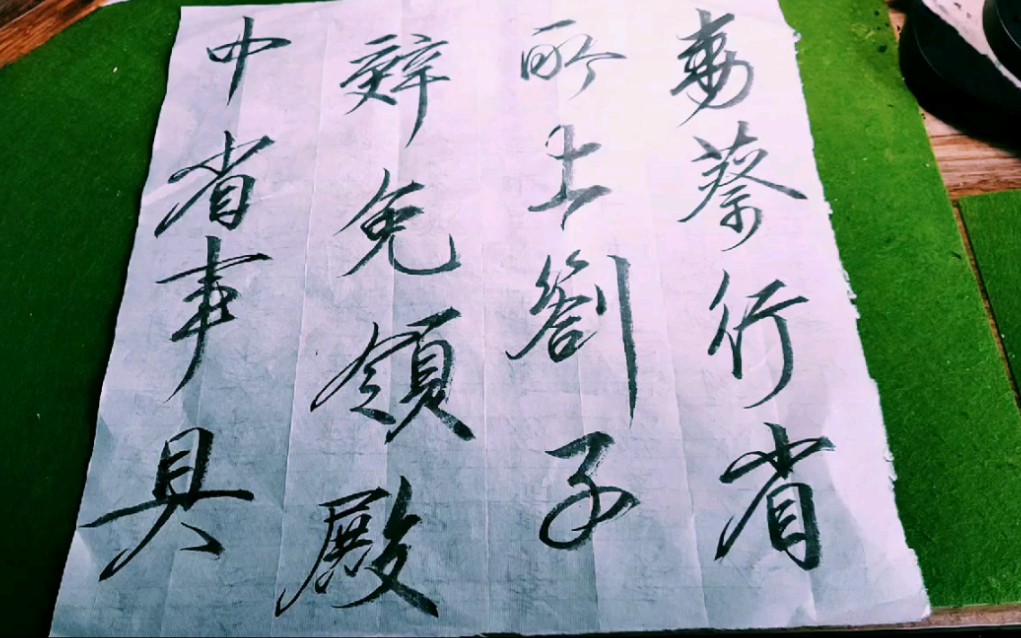 勅蔡行省
所上劄子
辤免領殿
中省事具